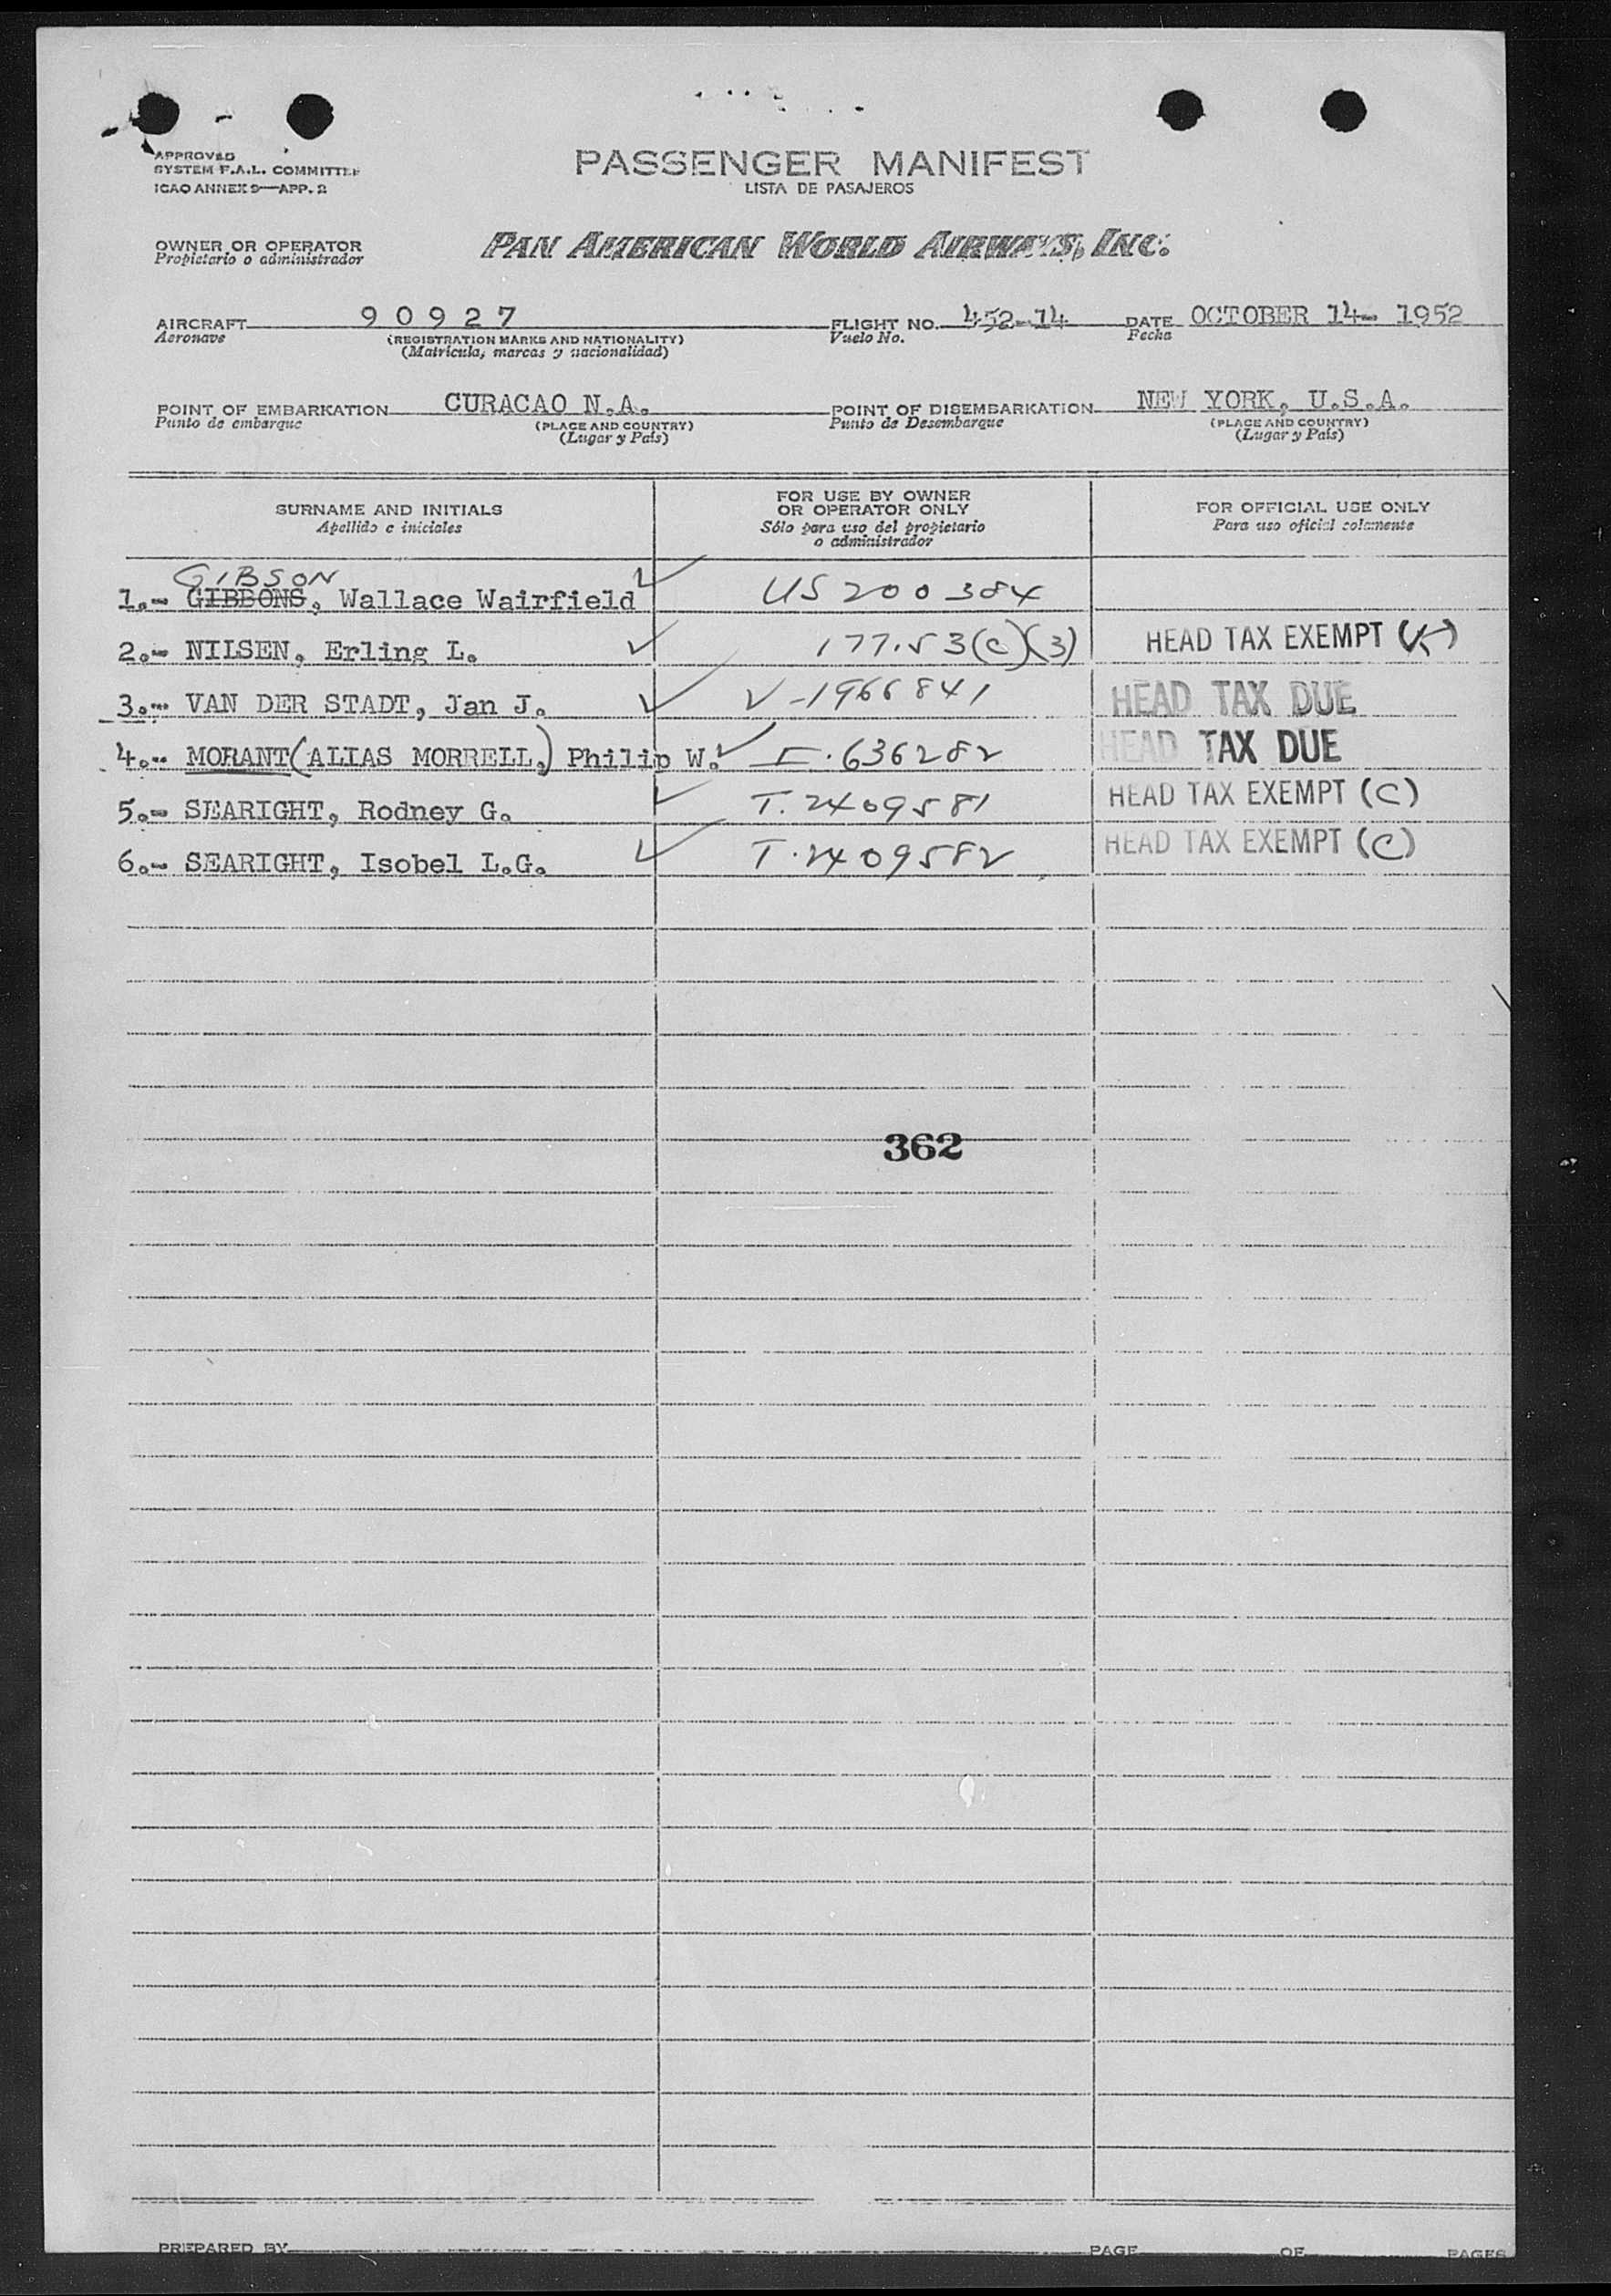 APPROVED
SYSTEM F.A.L. COMMITTEE
ICAO ANNEX 9—APP. 2
PASSENGER MANIFEST
LISTA DE PASAJEROS
OWNER OR OPERATOR
Propietario o administrador
PAN AMERICAN WORLD AIRWAYS, INC.
AIRCRAFT 90927 FLIGHT NO. 452-14 DATE OCTOBER 14- 1952
Aeronave (REGISTRATION MARKS AND NATIONALITY) Vuelo No. Fecha
(Matrícula, marcas y nacionalidad)
POINT OF EMBARKATION CURACAO N.A. POINT OF DISEMBARKATION NEW YORK, U.S.A.
Punto de embarque (PLACE AND COUNTRY) Punto de Desembarque (PLACE AND COUNTRY)
(Lugar y País) (Lugar y País)
SURNAME AND INITIALS FOR USE BY OWNER OR OPERATOR ONLY FOR OFFICIAL USE ONLY
Apellido e iniciales Sólo para uso del propietario o administrador Para uso oficial solamente
GIBSON
1.- GIBBONS, Wallace Wairfield US 200384
2.- NILSEN, Erling L. 177.53(C)(3) HEAD TAX EXEMPT
3.- VAN DER STADT, Jan J. V-1966841 HEAD TAX DUE
4.- MORANT (ALIAS MORRELL,) Philip W. I.636282 HEAD TAX DUE
5.- SEARIGHT, Rodney G. T.2409581 HEAD TAX EXEMPT (C)
6.- SEARIGHT, Isobel L.G. T.2409582 HEAD TAX EXEMPT (C)
362
PREPARED BY PAGE OF PAGES